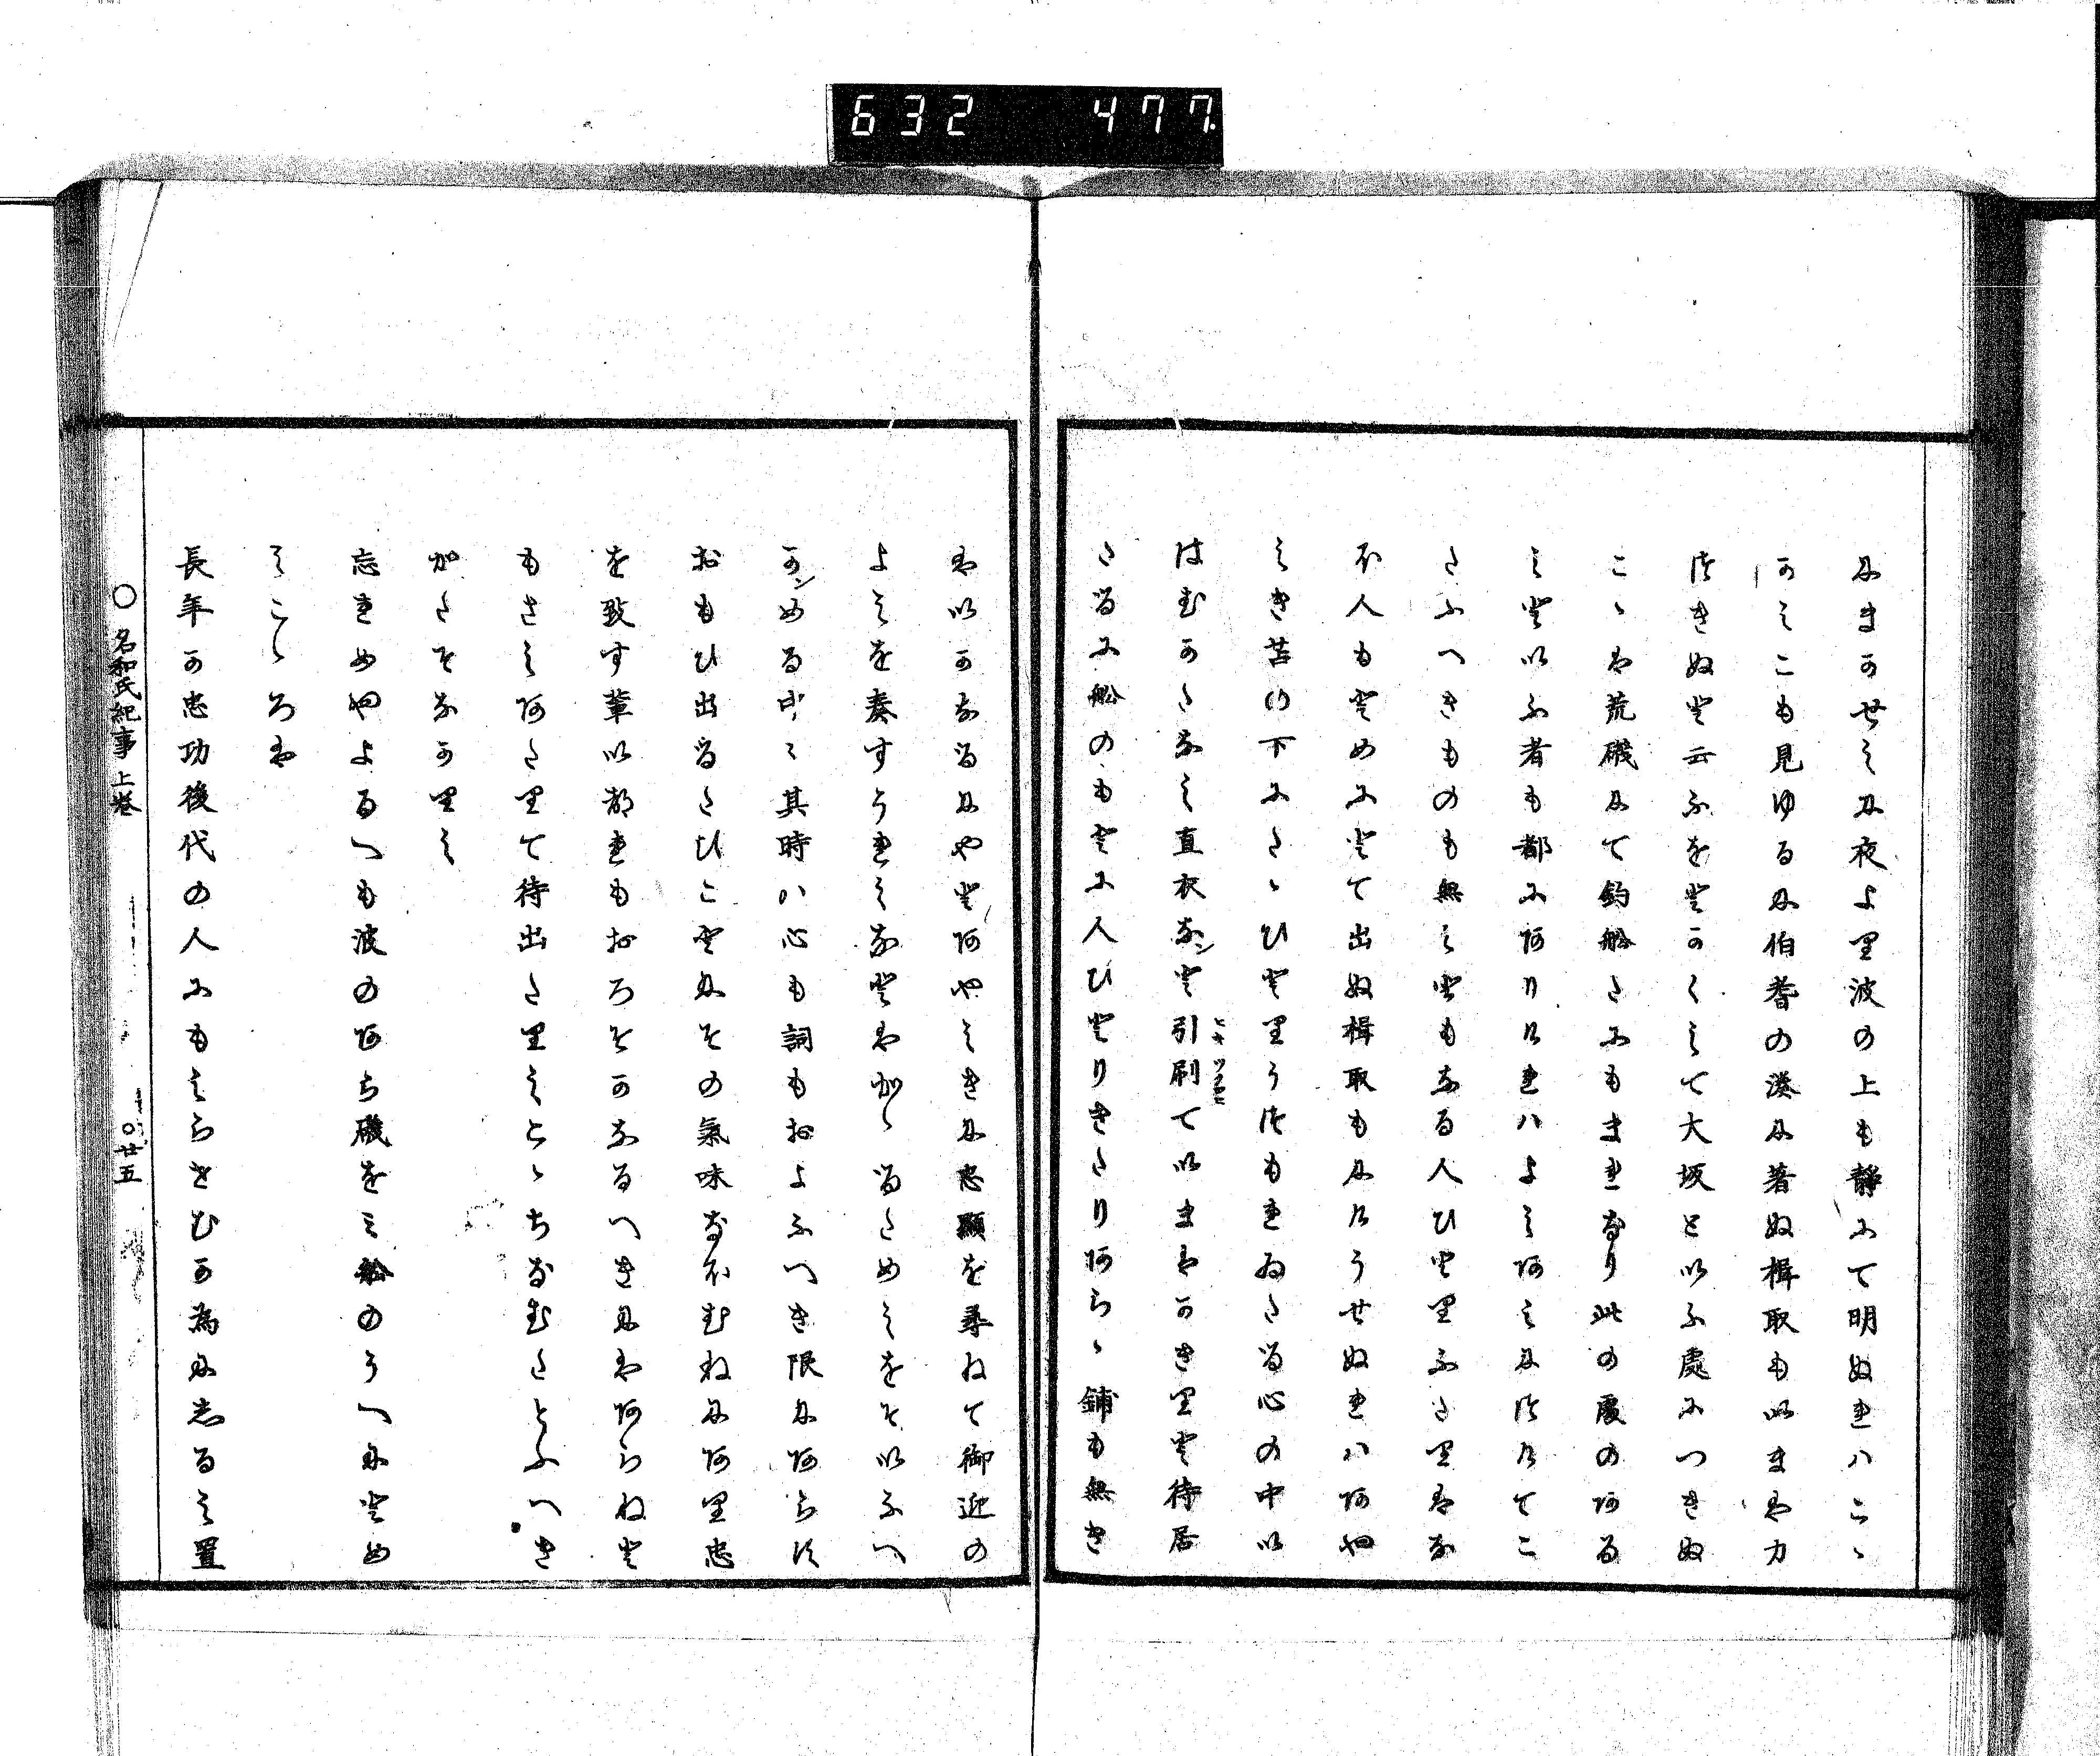 632 477.
にまかせしに夜より波の上も静にて明ぬれハこゝ
かしこも見ゆるに伯耆の湊に着ぬ楫取もいまは力
つきぬと云ふをとかくして大坂といふ處につきぬ
こゝは荒磯にて釣船たにもまれなり此の處のある
しといふ者も都にありけれハよしあしにつけてこ
たふへきものも無しともなる人ひとりふたりはな
ほ人もとめにとて出ぬ楫取もにけうせぬれハあや
しき苫の下にたゝひとりうつもれゐたる心の中い
はむかたなし直衣なンと引刷ていまはかきりと待居
たるに船のもとに人ひとりきたりあらゝ鋪も無き
はいかなるにやとあやしきに忠顯を尋ねて御迎の
よしを奏すうれしなとはかゝるためしをそいふへ
かンめる中〻其時ハ心も詞もおよふへき限にあらす
おもひ出るたひことにその氣味なほむねにあり忠
を致す輩いつれもおろそかなるへきにはあらねと
もさしあたりて待出たりしこゝちなむたとふへき
かたそなかりし
忘れめやよるへも波のあら磯をみ船のうへにとめ
しこゝろは
長年か忠功後代の人にもしらせむか為に志るし置
○名和氏紀事 上巻 ○廿五